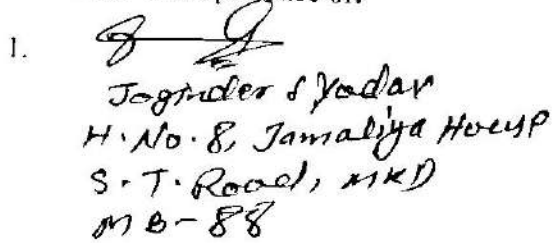 1.
Joginder S Yadav
H. No. 8, Jamaliya House
S. T. Road, MKD
MB-88